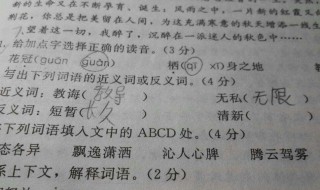 新的生命又在不断孕育、诞生。风雨之中,一片新的红霞又
荆花,你总是把美留在人间,为这充满寒意的秋天增添一线生
望着这一切,我醉了,沉醉在一派迷人的秋色中……
给加点字选择正确的读音。(3分)
花冠(guān guàn) 栖(qī xī)身之地
写出下列词语的近义词或反义词。(4分)
近义词:教诲(教导) 无私(无限)
反义词:短暂(长久) 清新(
下列词语填入文中的ABCD处。(4分)
态各异 飘逸潇洒 沁人心脾 腾云驾雾
系上下文,解释词语。(2分)